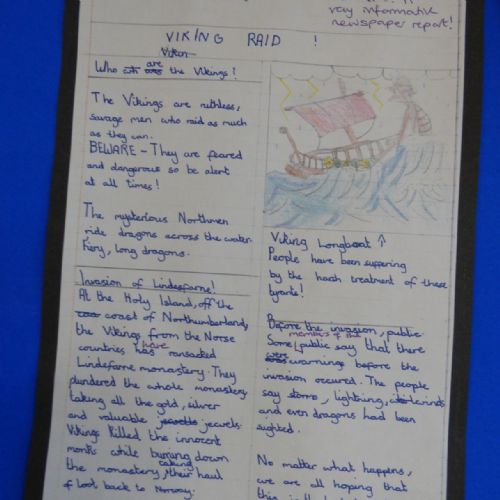 very informatik
newspaper report!
VIKING RAID !
Who are the Vikings?
The Vikings are ruthless,
savage men who raid as much
as they can.
BEWARE - They are feared
and dangerous so be alert
at all times!
The mysterious Northmen
ride dragons across the water.
Fiery, long dragons.
Invasion of Lindesfarne!
At the Holy Island, off the
coast of Northumberland,
the Vikings from the Norse
countries have ransacked
Lindefarne monastery. They
plundered the whole monastery
taking all the gold, silver
and valuable jewels.
Vikings killed the innocent
monks while burning down
the monastery, taking their haul
of loot back to Norway.
Viking Longboat ↑
People have been suffering
by the harsh treatment of these
tyrants!
Before the invasion, public
Some members of the public say that there
were warnings before the
invasion occured. The people
say storms, lightning, whirlwinds
and even dragons had been
sighted.
No matter what happens,
we are all hoping that